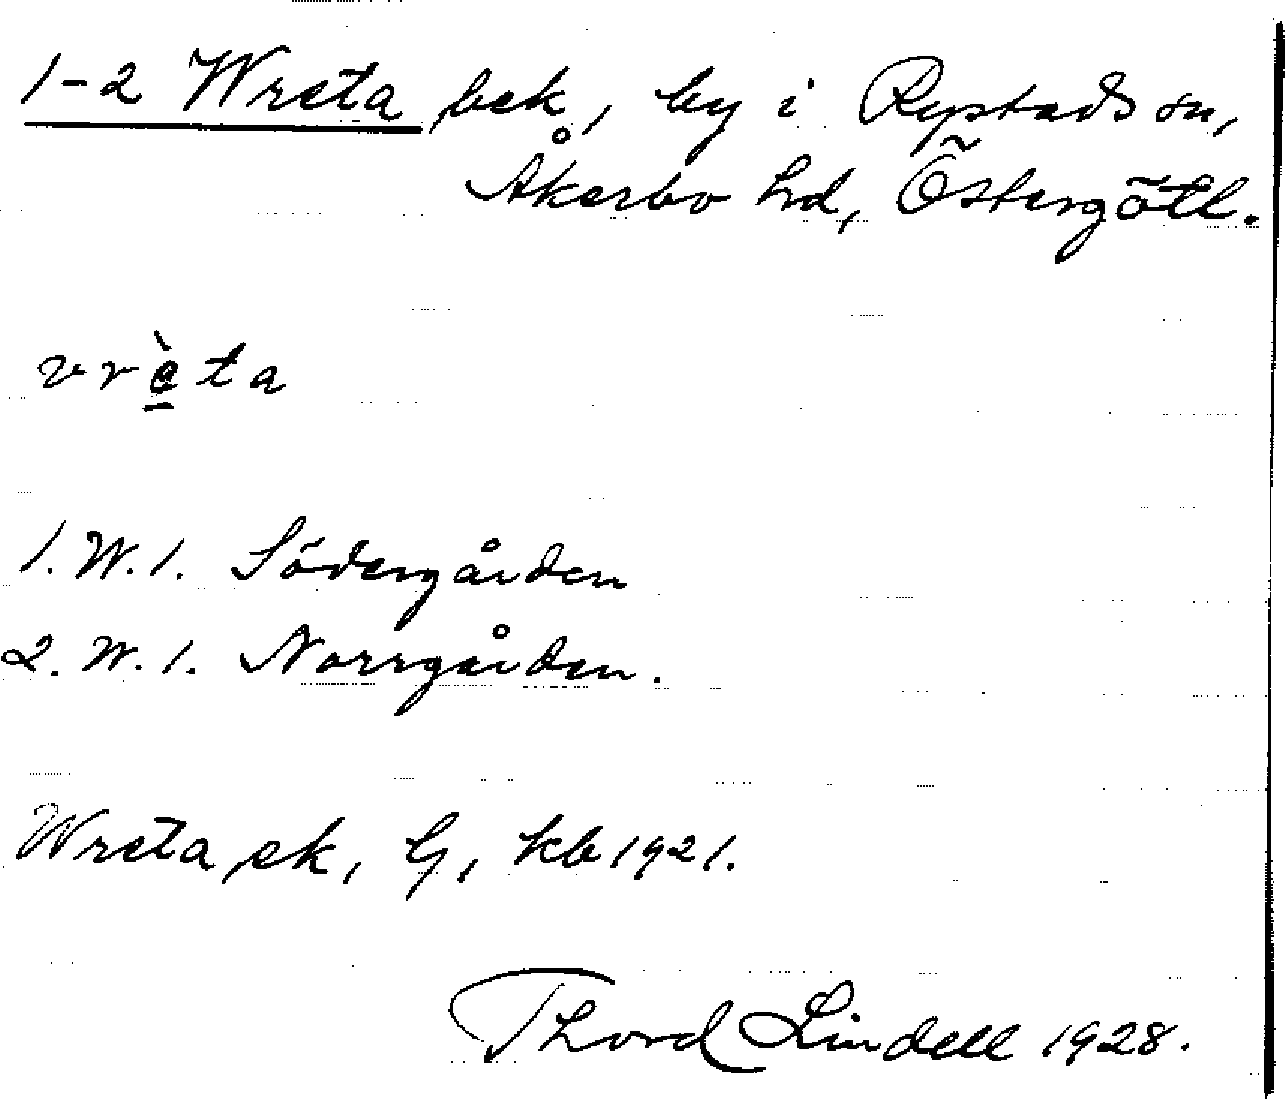 1-2 Wreta bek, by i Rystads sn,
Åkerbo hd, Östergötl.
vrèta
1. W. 1. Södergården
2. W. 1. Norrgården.
Wreta, ek, G, kb 1921.
Thord Lindell 1928.